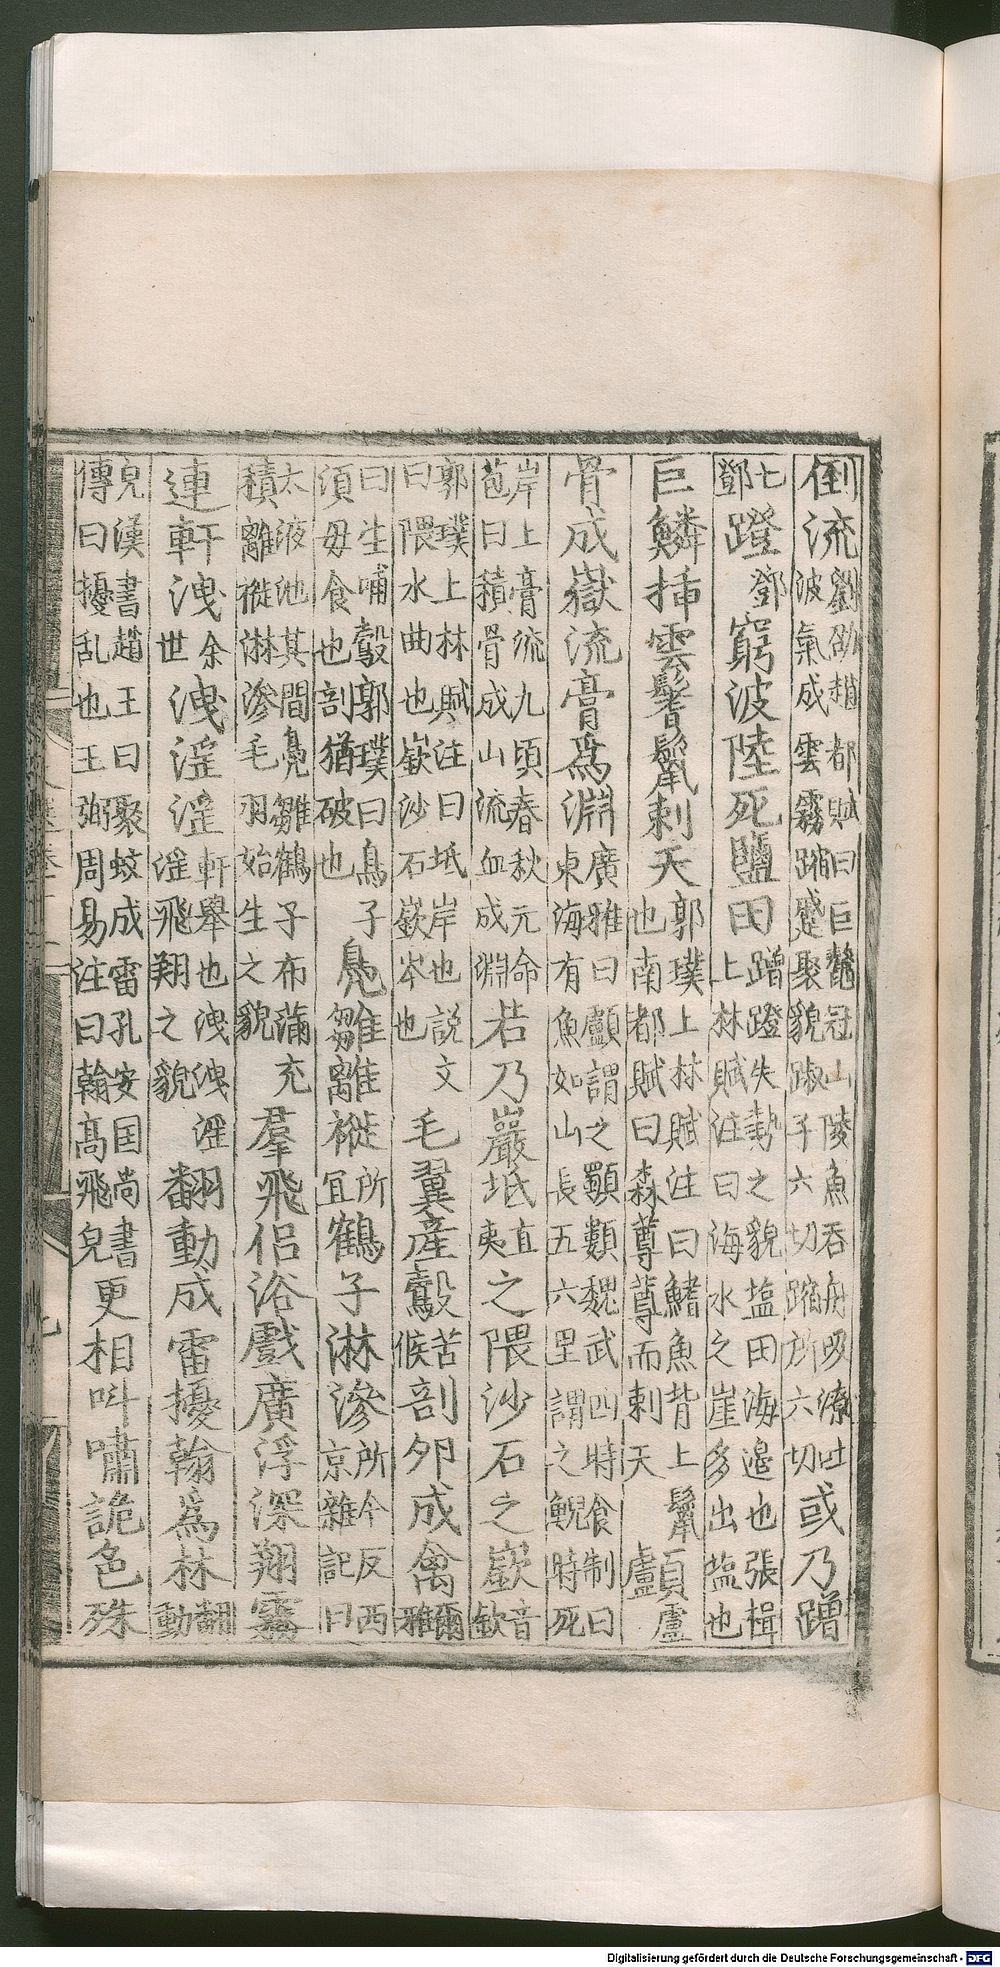 倒流劉劭趙都賦曰巨鼇冠山陵魚吞舟吸潦吐波氣成雲霧蹜蹙聚貌踧子六切蹜所六切或乃蹭
七鄧蹬鄧窮波陸死鹽田蹭蹬失勢之貌塩田海邉也張楫上林賦注曰海水之崖多出塩也
巨鱗揷雲鬐鬣刺天郭璞上林賦注曰鰭魚背上鬣也南都賦曰森蓴蓴而刺天顱盧
骨成嶽流膏爲淵廣雅曰顱謂之顆顭魏武四時食制曰東海有魚如山長五六里謂之鯢時死
岸上膏流九頃春秋元命苞曰積骨成山流血成淵若乃巖坻直夷之隈沙石之嶔音欽
郭璞上林賦注曰坻岸也說文曰隈水曲也嶔沙石嶔岑也毛翼產鷇苦候剖卵成禽爾雅
曰生哺鷇郭璞曰鳥子須母食也剖猶破也鳧雛離褷所宜鶴子淋滲所今反西京雜記曰
太液池其間鳧雛鶴子布蒲充積離褷淋滲毛羽始生之貌羣飛侣浴戲廣浮深翔霧
連軒洩余世洩淫淫軒舉也洩洩淫淫飛翔之貌翻動成雷擾翰爲林翻動
皃漢書趙王曰聚蚊成雷孔安国尚書傳曰擾乱也王弼周易注曰翰高飛皃更相叫嘯詭色殊
Digitalisierung gefördert durch die Deutsche Forschungsgemeinschaft - DFG